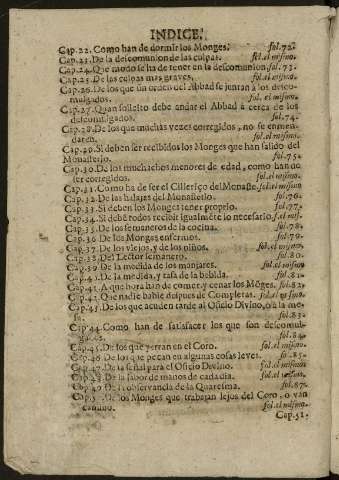 INDICE.
Cap. 22. Como han de dormir los Monges. fol. 72.
Cap. 23. De la descomunion de las culpas. fol. el mismo.
Cap. 24. Que modo se ha de tener en la descomunion. fol. 73.
Cap. 25. De las culpas mas graves. fol. el mismo.
Cap. 26. De los que sin orden del Abbad se juntan à los desco-
mulgados. fol. el mismo.
Cap. 27. Quan solicito debe andar el Abbad à cerca de los
descomulgados. fol. 74.
Cap. 28. De los que muchas vezes corregidos, no se enmen-
daren. fol. el mismo.
Cap. 29. Si deben ser recibidos los Monges que han salido del
Monasterio. fol. 75.
Cap. 30. De los muchachos menores de edad, como han de
ser corregidos. fol. el mismo.
Cap. 31. Como ha de ser el Cilleriço del Monaste. fol. el mismo
Cap. 32. De las halajas del Monasterio. fol. 76.
Cap. 33. Si deben los Monges tener proprio. fol. 77.
Cap. 34. Si debē todos recibir igualmēte lo necesario. fol. el mis.
Cap. 35. De los semaneros de la cocina. fol. 78.
Cap. 36. De los Monges enfermos. fol. 79.
Cap. 37. De los viejos, y de los niños. fol. el mismo.
Cap. 38. Del Lector semanero. fol. 80.
Cap. 39. De la medida de los manjares. fol. el mismo.
Cap. 40. De la medida, y tasa de la bebida. fol. 81.
Cap. 41. A que hora han de comer, y cenar los Mōges. fol. 82.
Cap. 42. Que nadie hable despues de Completas. fol. el mismo.
Cap. 43. De los que acuden tarde al Oficio Divino, ò à la me-
sa. fol. 83.
Cap. 44. Como han de satisfacer los que son descomul-
gados. fol. 84.
Cap. 45. De los que yerran en el Coro. fol. el mismo.
Cap. 46. De los que pecan en algunas cosas leves. fo. 85.
Cap. 47. De la señal para el Oficio Divino. fol. el mismo.
Cap. 48. De la labor de manos de cada dia. fol. el mismo.
Cap. 49. De la observancia de la Quaresma. fol. 87.
Cap. 50. De los Monges que trabajan lejos del Coro, o van
camino. fol. el mismo.
Cap. 51.